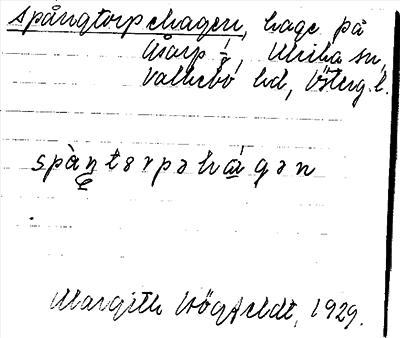 Spångtorpehagen, hage på
Åsarp 1/2, Ulrika sn,
Vallebo hd, Österg. l.
spàŋtɔrpəhágən
Margith Högfeldt, 1929.